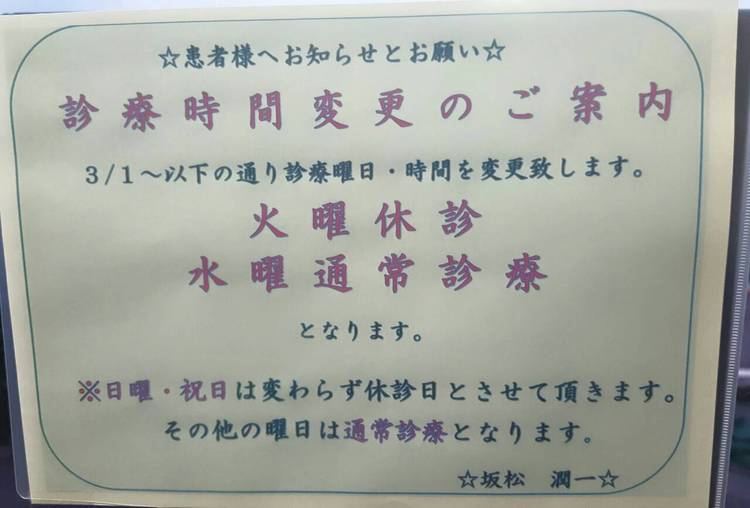 ☆患者様へお知らせとお願い☆
診療時間変更のご案内
3/1~以下の通り診療曜日・時間を変更致します。
火曜休診
水曜通常診療
となります。
※日曜・祝日は変わらず休診日とさせて頂きます。
その他の曜日は通常診療となります。
☆坂松 潤一☆